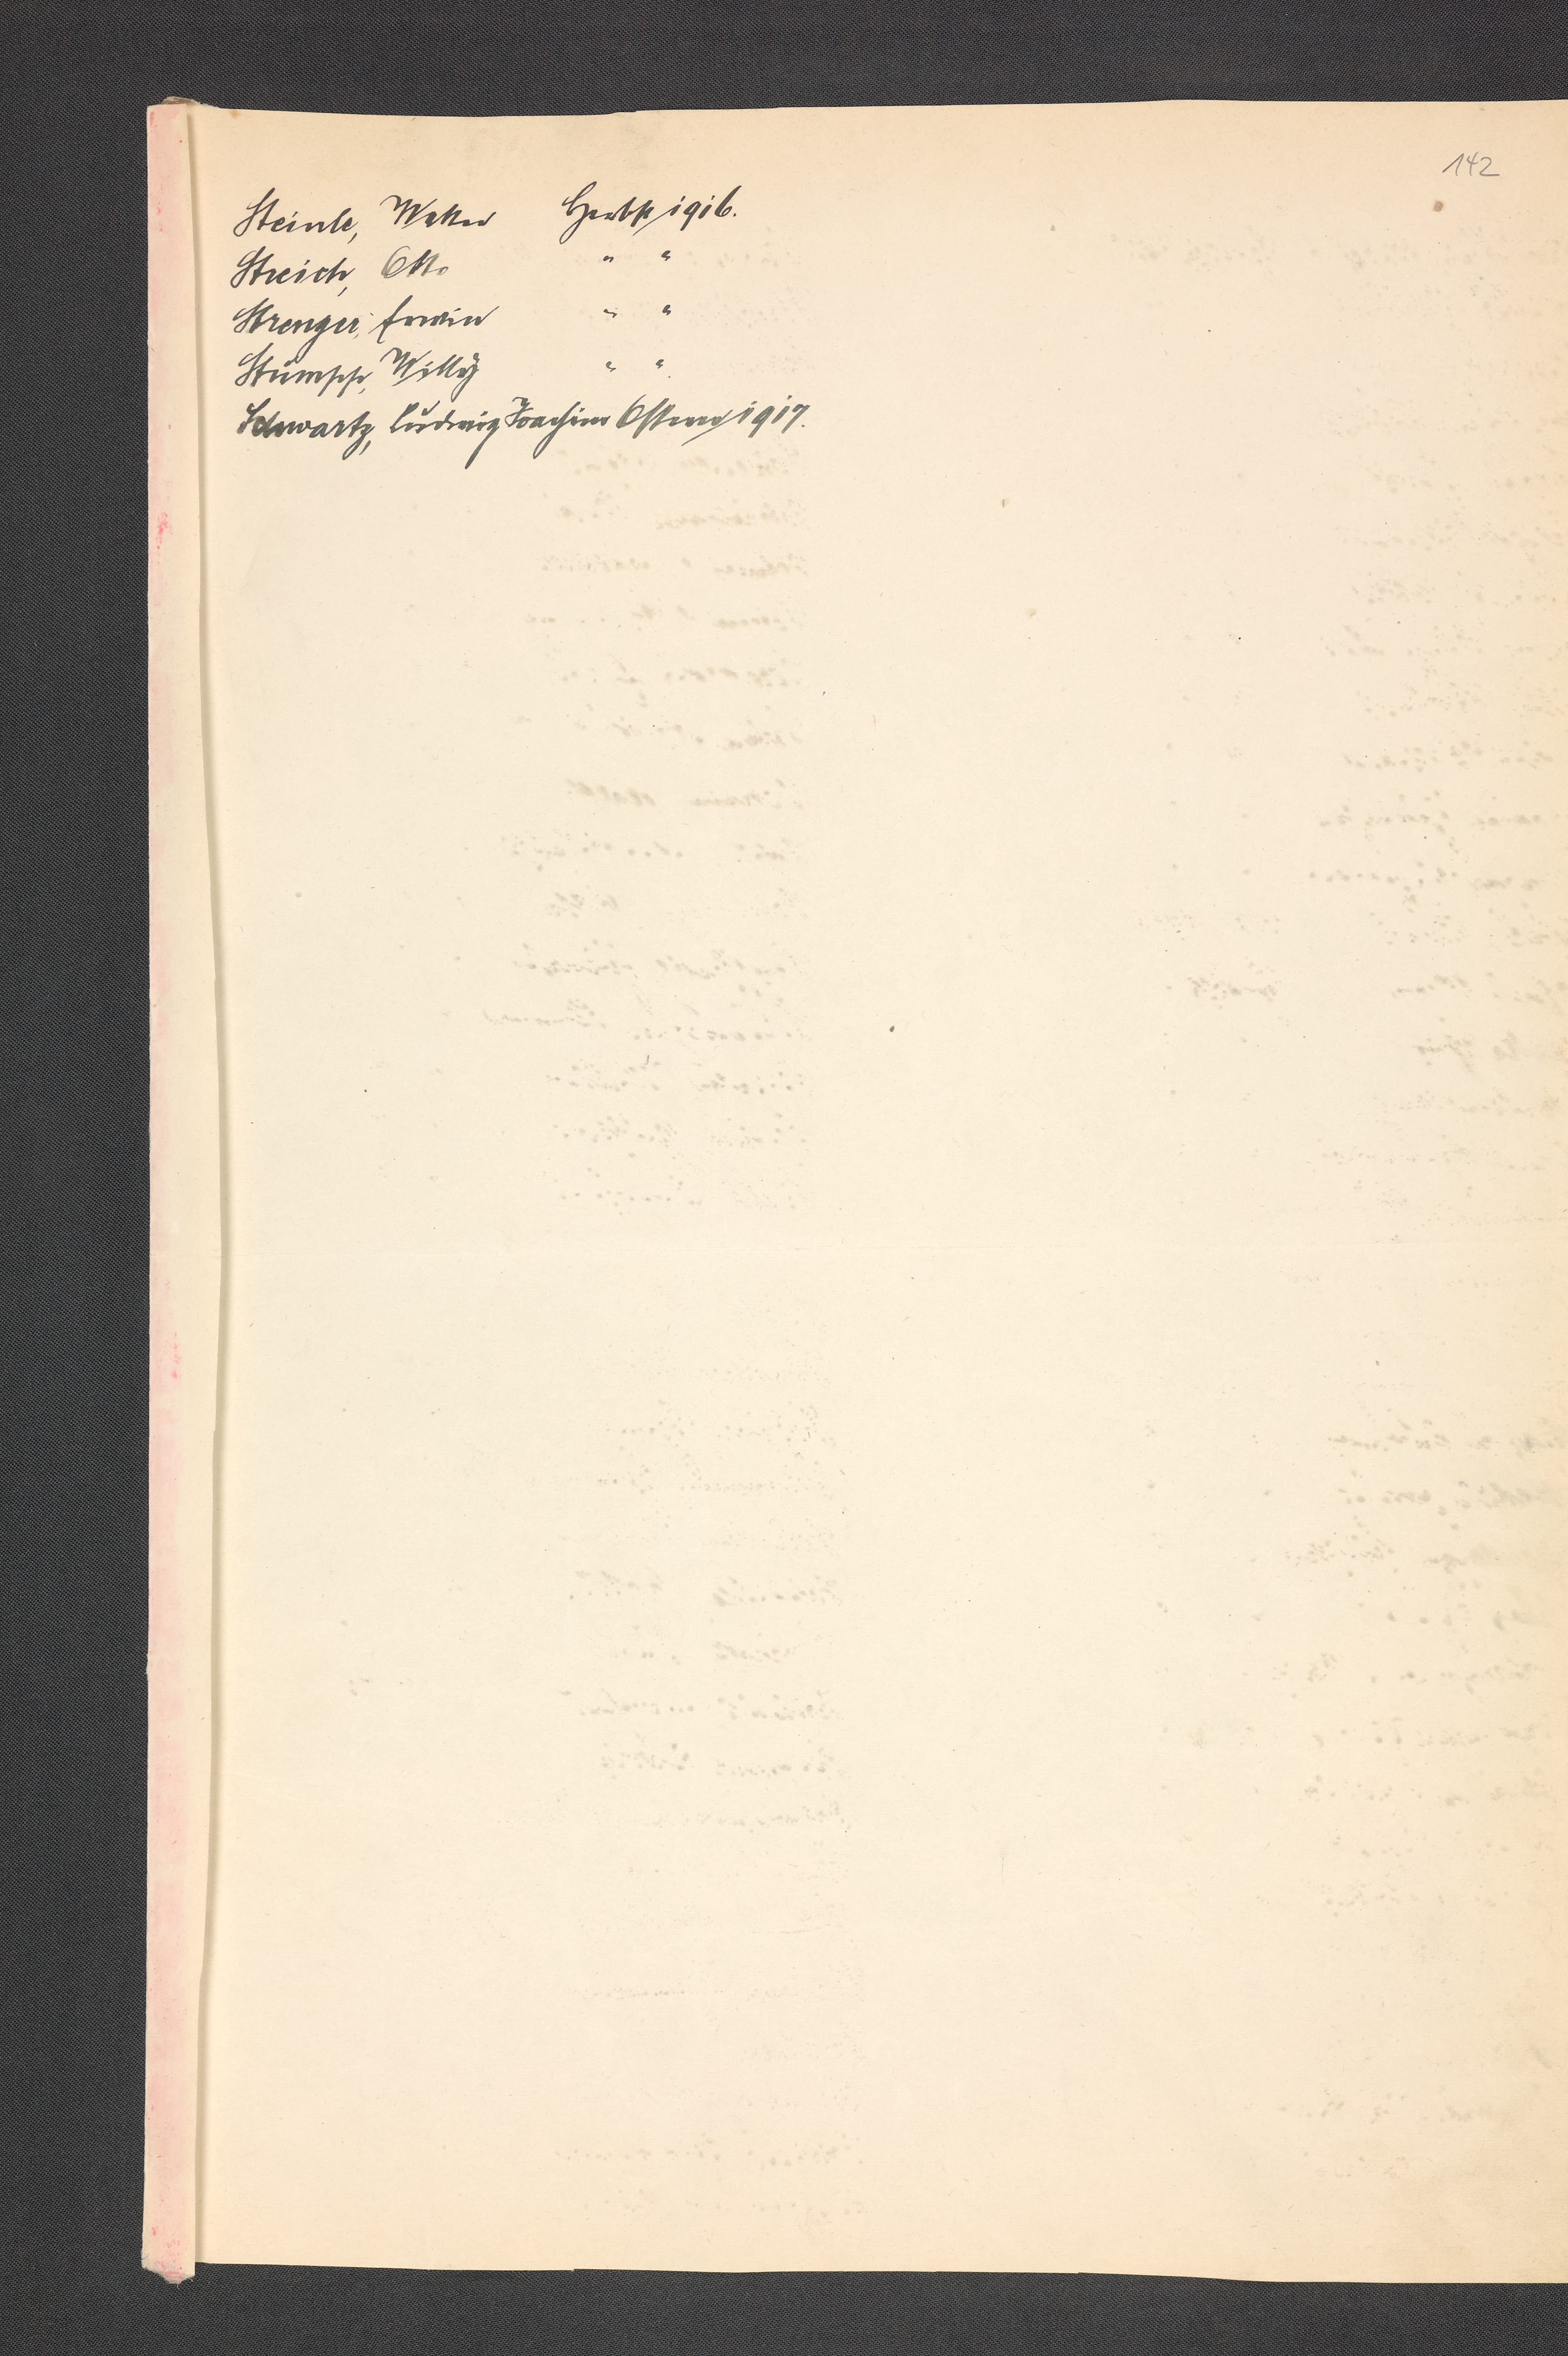 142
Steinle, Walter Herbst 1916.
Streich, Otto " "
Strenger, Erwin " "
Stumpp, Willy " "
Schwartz, Ludwig Joachim Ostern 1917.